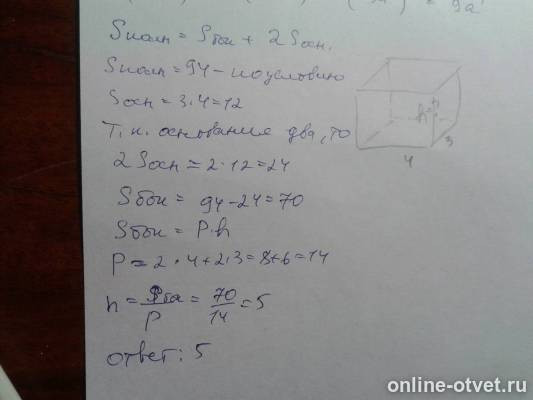 9a
Sполн = Sбок + 2Sосн.
Sполн = 94 – по условию
Sосн = 3·4 = 12
Т.к. основания два, то
2Sосн = 2·12 = 24
Sбок = 94-24 = 70
Sбок = P·h
P = 2·4+2·3 = 8+6 = 14
h = Sбок/P = 70/14 = 5
ответ: 5
h
3
4
online-otvet.ru